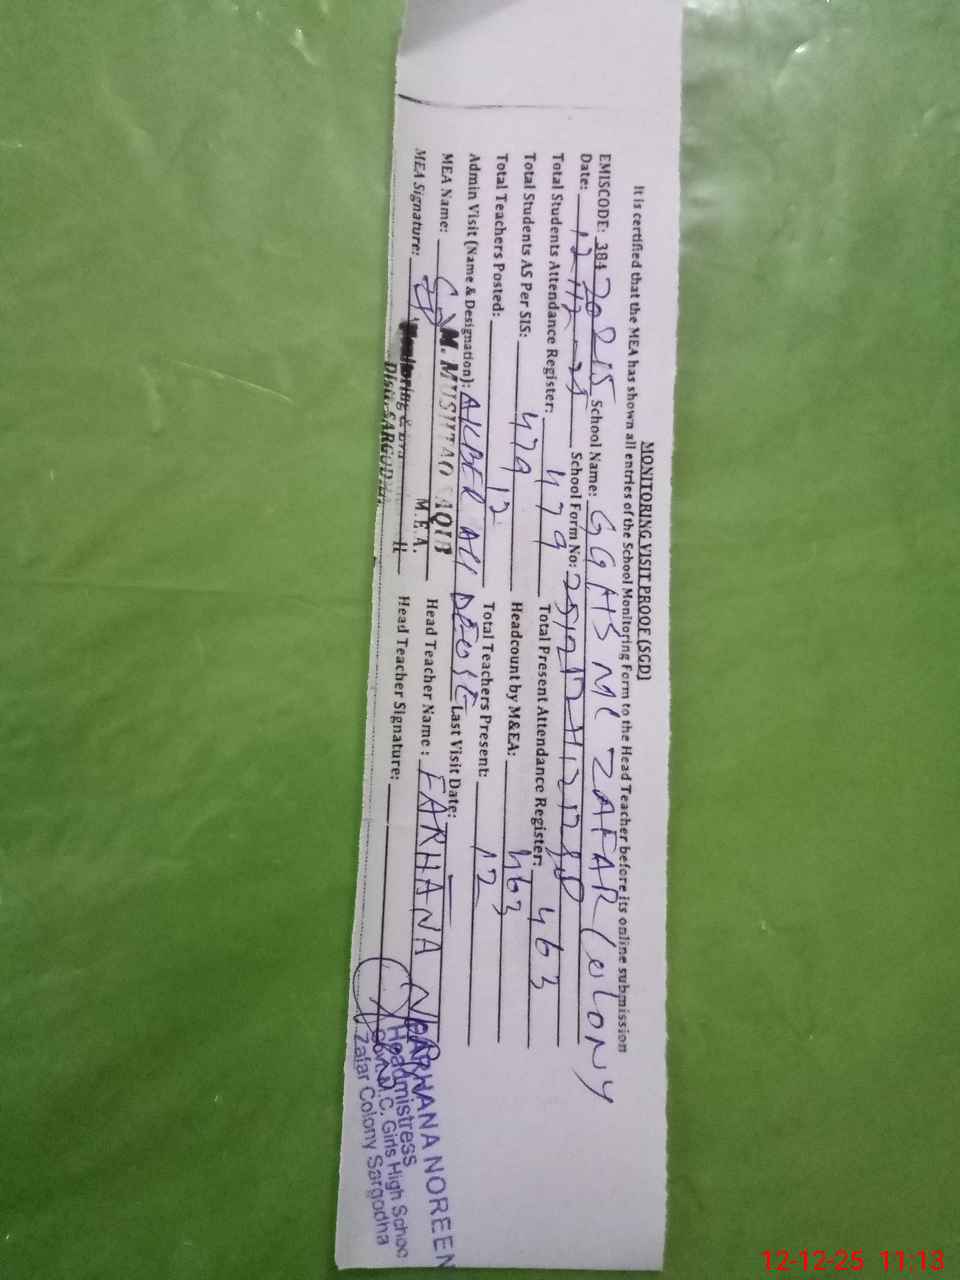 MONITORING VISIT PROOF (SGD)
It is certified that the MEA has shown all entries of the School Monitoring Form to the Head Teacher before its online submission
EMISCODE: 38420215 School Name: GGHS MC ZAFAR COLONY
Date: 12-12-25 School Form No:
Total Students Attendance Register: 479 Total Present Attendance Register: 463
Total Students AS Per SIS: 479 Headcount by M&EA: 463
Total Teachers Posted: 12 Total Teachers Present: 12
Admin Visit (Name & Designation): AKBER ALI Last Visit Date:
MEA Name: M. MUSHTAQ SAQIB Head Teacher Name : FARHANA NOREEN
M.E.A.
MEA Signature: Head Teacher Signature:
Monitoring &
Distt. SARGODHA
FARHANA NOREEN
Headmistress
Govt. M.C. Girls High School
Zafar Colony Sargodha
12-12-25 11:13